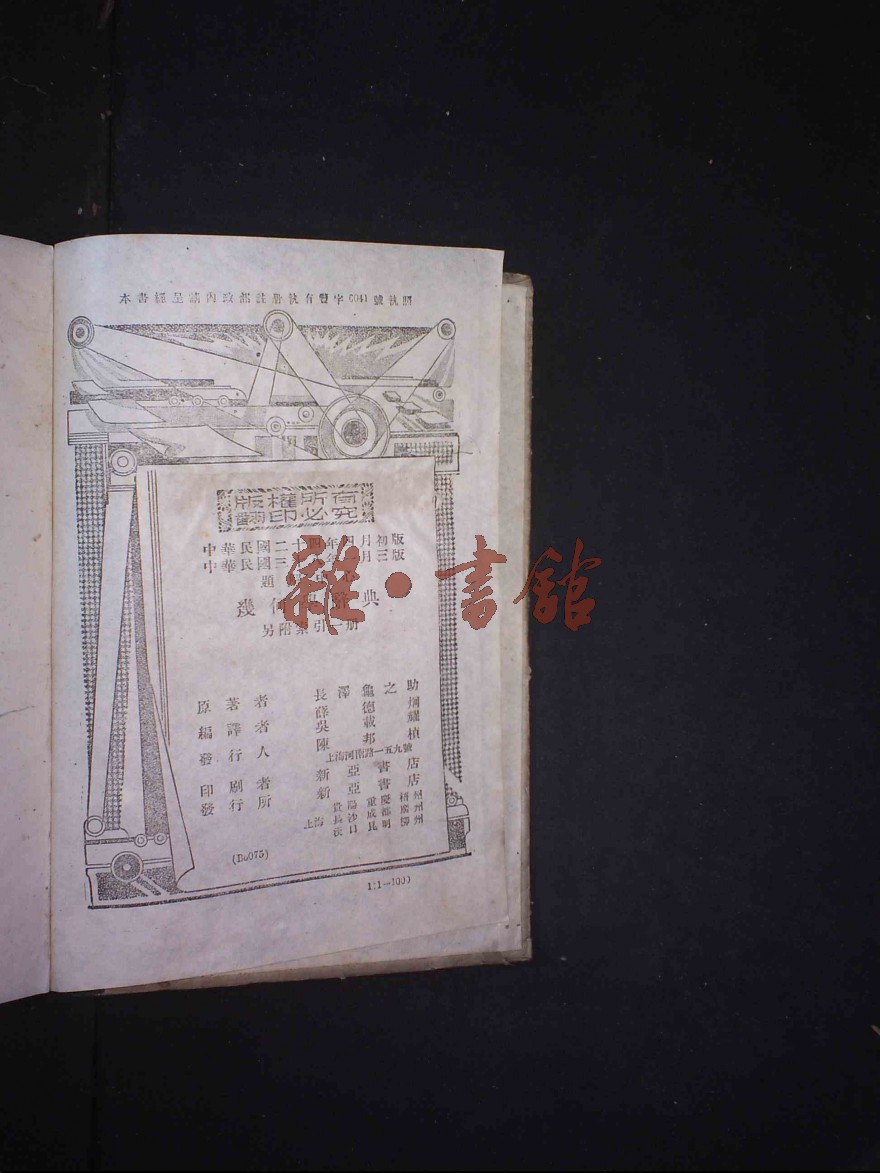 本書經呈請內政部註冊執有警字6041號執照
版權所有
翻印必究
中華民國二十四年四月初版
中華民國三年月三版
題
幾何辭典
另附索引一册
原著者 長澤龜之助
編譯者 薛德炯
吳載燿
發行人 陳邦楨
上海河南路一五九號
印刷者 新亞書店
發行所 新亞書店
貴陽 重慶 梧州
上海 長沙 成都 廣州
漢口 昆明 柳州
(Bc075)
1:1—1000
雜·書館